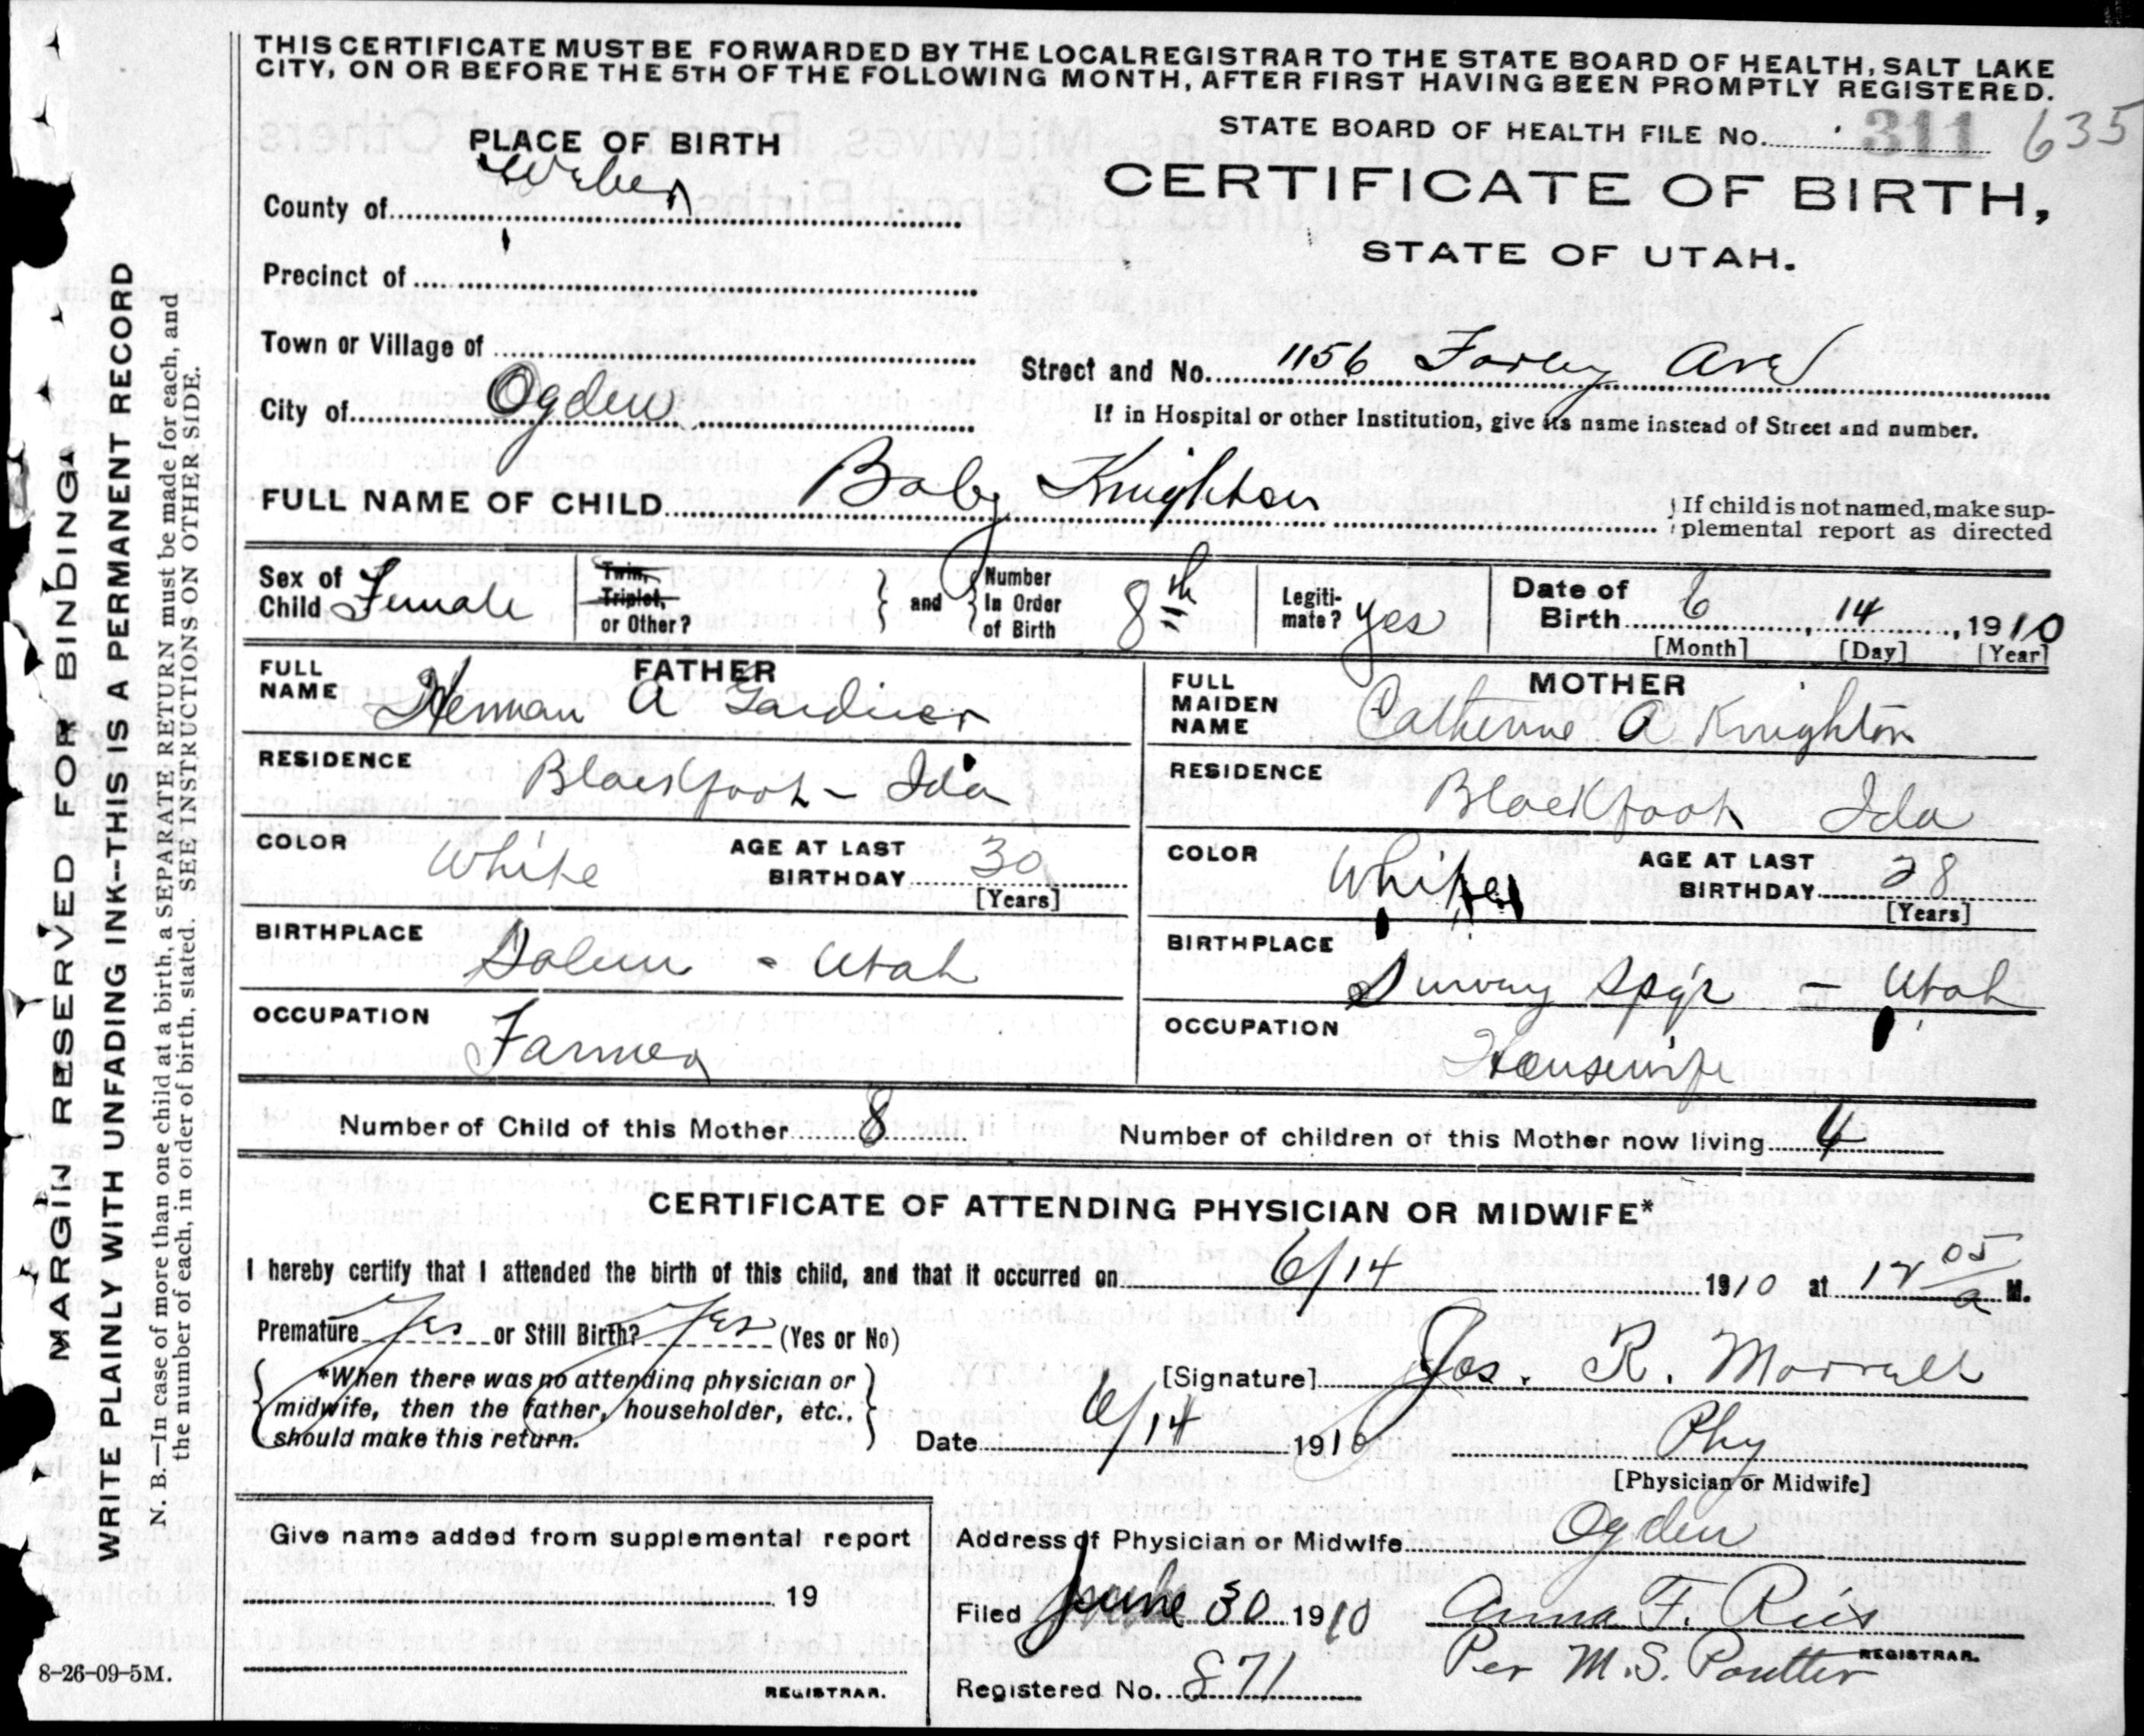 THIS CERTIFICATE MUST BE FORWARDED BY THE LOCAL REGISTRAR TO THE STATE BOARD OF HEALTH, SALT LAKE
CITY, ON OR BEFORE THE 5TH OF THE FOLLOWING MONTH, AFTER FIRST HAVING BEEN PROMPTLY REGISTERED.
STATE BOARD OF HEALTH FILE No. 311 635
PLACE OF BIRTH
CERTIFICATE OF BIRTH,
STATE OF UTAH.
County of Weber
Precinct of
Town or Village of
Street and No. 1156 Farley Ave
City of Ogden
If in Hospital or other Institution, give its name instead of Street and number.
FULL NAME OF CHILD Baby Knighton
If child is not named, make sup-
plemental report as directed
Sex of Child Female
Twin, Triplet, or Other?
and
Number In Order of Birth 8th
Legiti-mate? yes
Date of Birth 6, 14, 1910
[Month] [Day] [Year]
FATHER
FULL NAME Herman A Gardner
RESIDENCE Blackfoot - Ida
COLOR White
AGE AT LAST BIRTHDAY 30
[Years]
BIRTHPLACE Salem - Utah
OCCUPATION Farmer
MOTHER
FULL MAIDEN NAME Catherine A Knighton
RESIDENCE Blackfoot Ida
COLOR White
AGE AT LAST BIRTHDAY 28
[Years]
BIRTHPLACE Spgs - Utah
OCCUPATION Housewife
Number of Child of this Mother 8
Number of children of this Mother now living 4
CERTIFICATE OF ATTENDING PHYSICIAN OR MIDWIFE*
I hereby certify that I attended the birth of this child, and that it occurred on 6/14 1910 at 12 05 a M.
Premature Yes or Still Birth? Yes (Yes or No)
*When there was no attending physician or
midwife, then the father, householder, etc.,
should make this return.
[Signature] Jos. R. Morrell
Date 6/14 1910
Phy
[Physician or Midwife]
Give name added from supplemental report
19
REGISTRAR.
Address of Physician or Midwife Ogden
Filed June 30 1910
Anna F. Ries
REGISTRAR.
Per M.S. Poulter
Registered No. 871
8-26-09-5M.
MARGIN RESERVED FOR BINDING.
WRITE PLAINLY WITH UNFADING INK--THIS IS A PERMANENT RECORD
N. B.—In case of more than one child at a birth, a SEPARATE RETURN must be made for each, and
the number of each, in order of birth, stated. SEE INSTRUCTIONS ON OTHER SIDE.